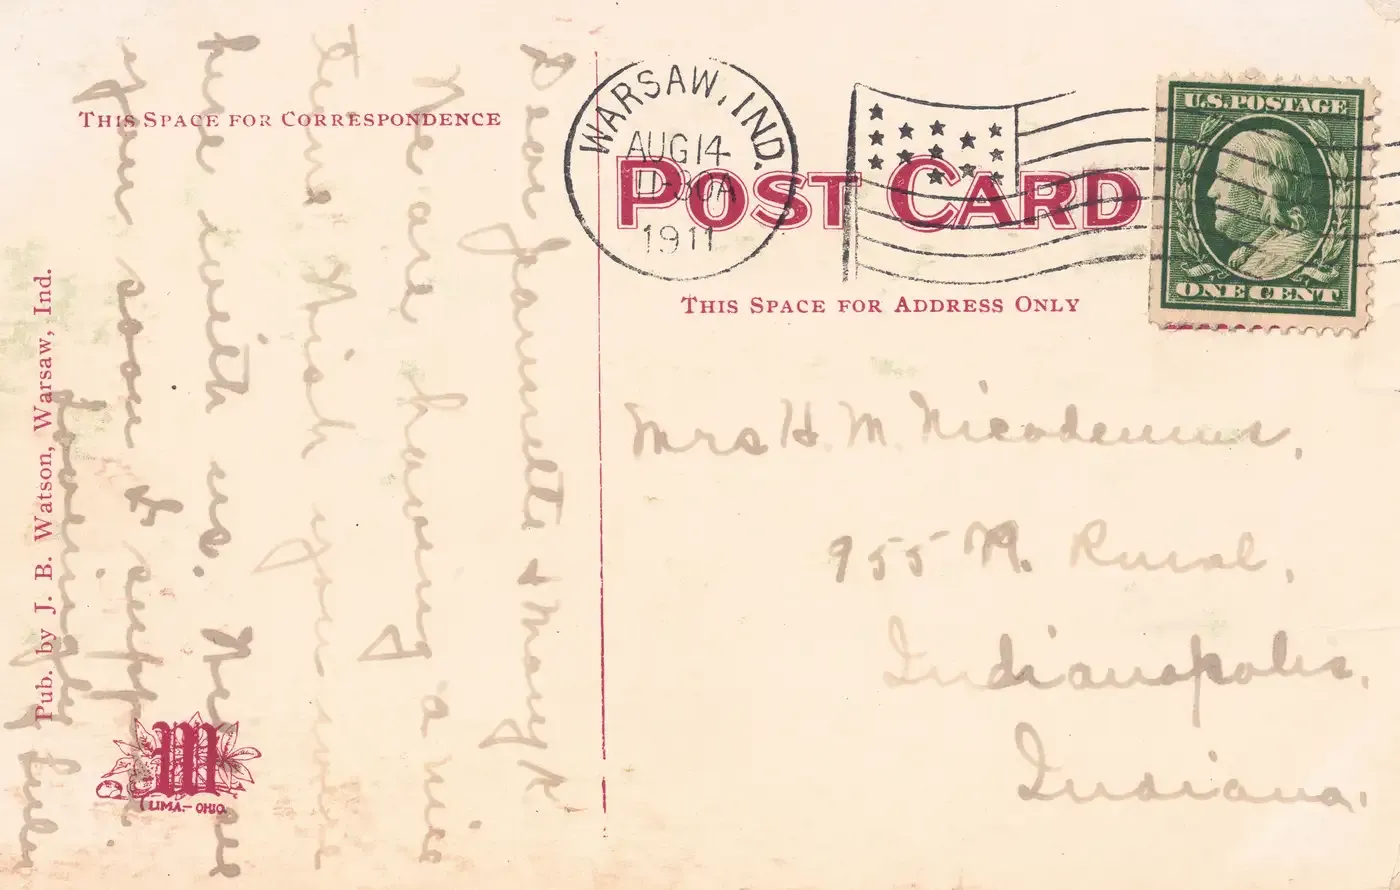 THIS SPACE FOR CORRESPONDENCE
Dear Jeannette & Mary K
We are having a nice
time Wish you were
here with us. Will see
you soon I suppose.
Lovingly
Pub. by J. B. Watson, Warsaw, Ind.
M
LIMA.- OHIO.
WARSAW, IND.
AUG 14
11-30A
1911
POST CARD
U.S. POSTAGE
ONE CENT
THIS SPACE FOR ADDRESS ONLY
Mrs H. M. Nicodemus,
955 N. Rural,
Indianapolis,
Indiana.